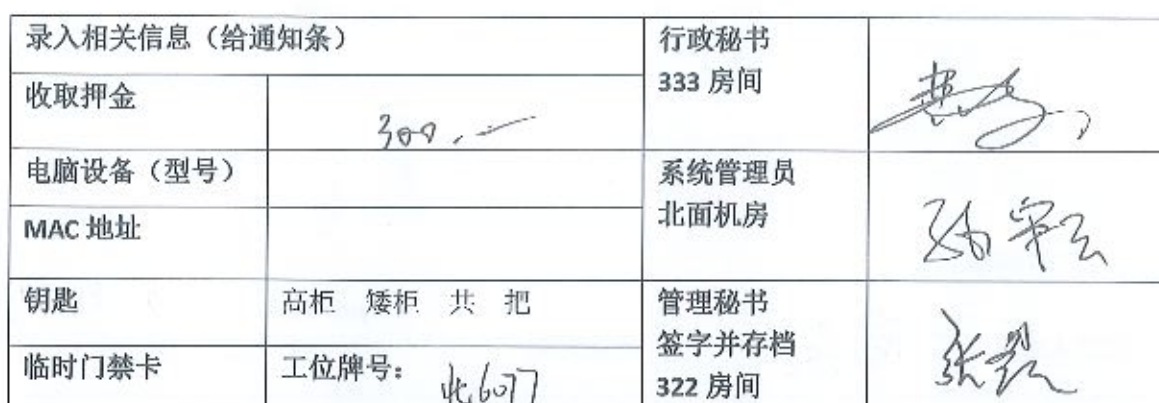 录入相关信息（给通知条）
行政秘书
333 房间
收取押金
300.—
电脑设备（型号）
系统管理员
北面机房
MAC 地址
钥匙
高柜 矮柜 共 把
管理秘书
签字并存档
322 房间
临时门禁卡
工位牌号：北6077